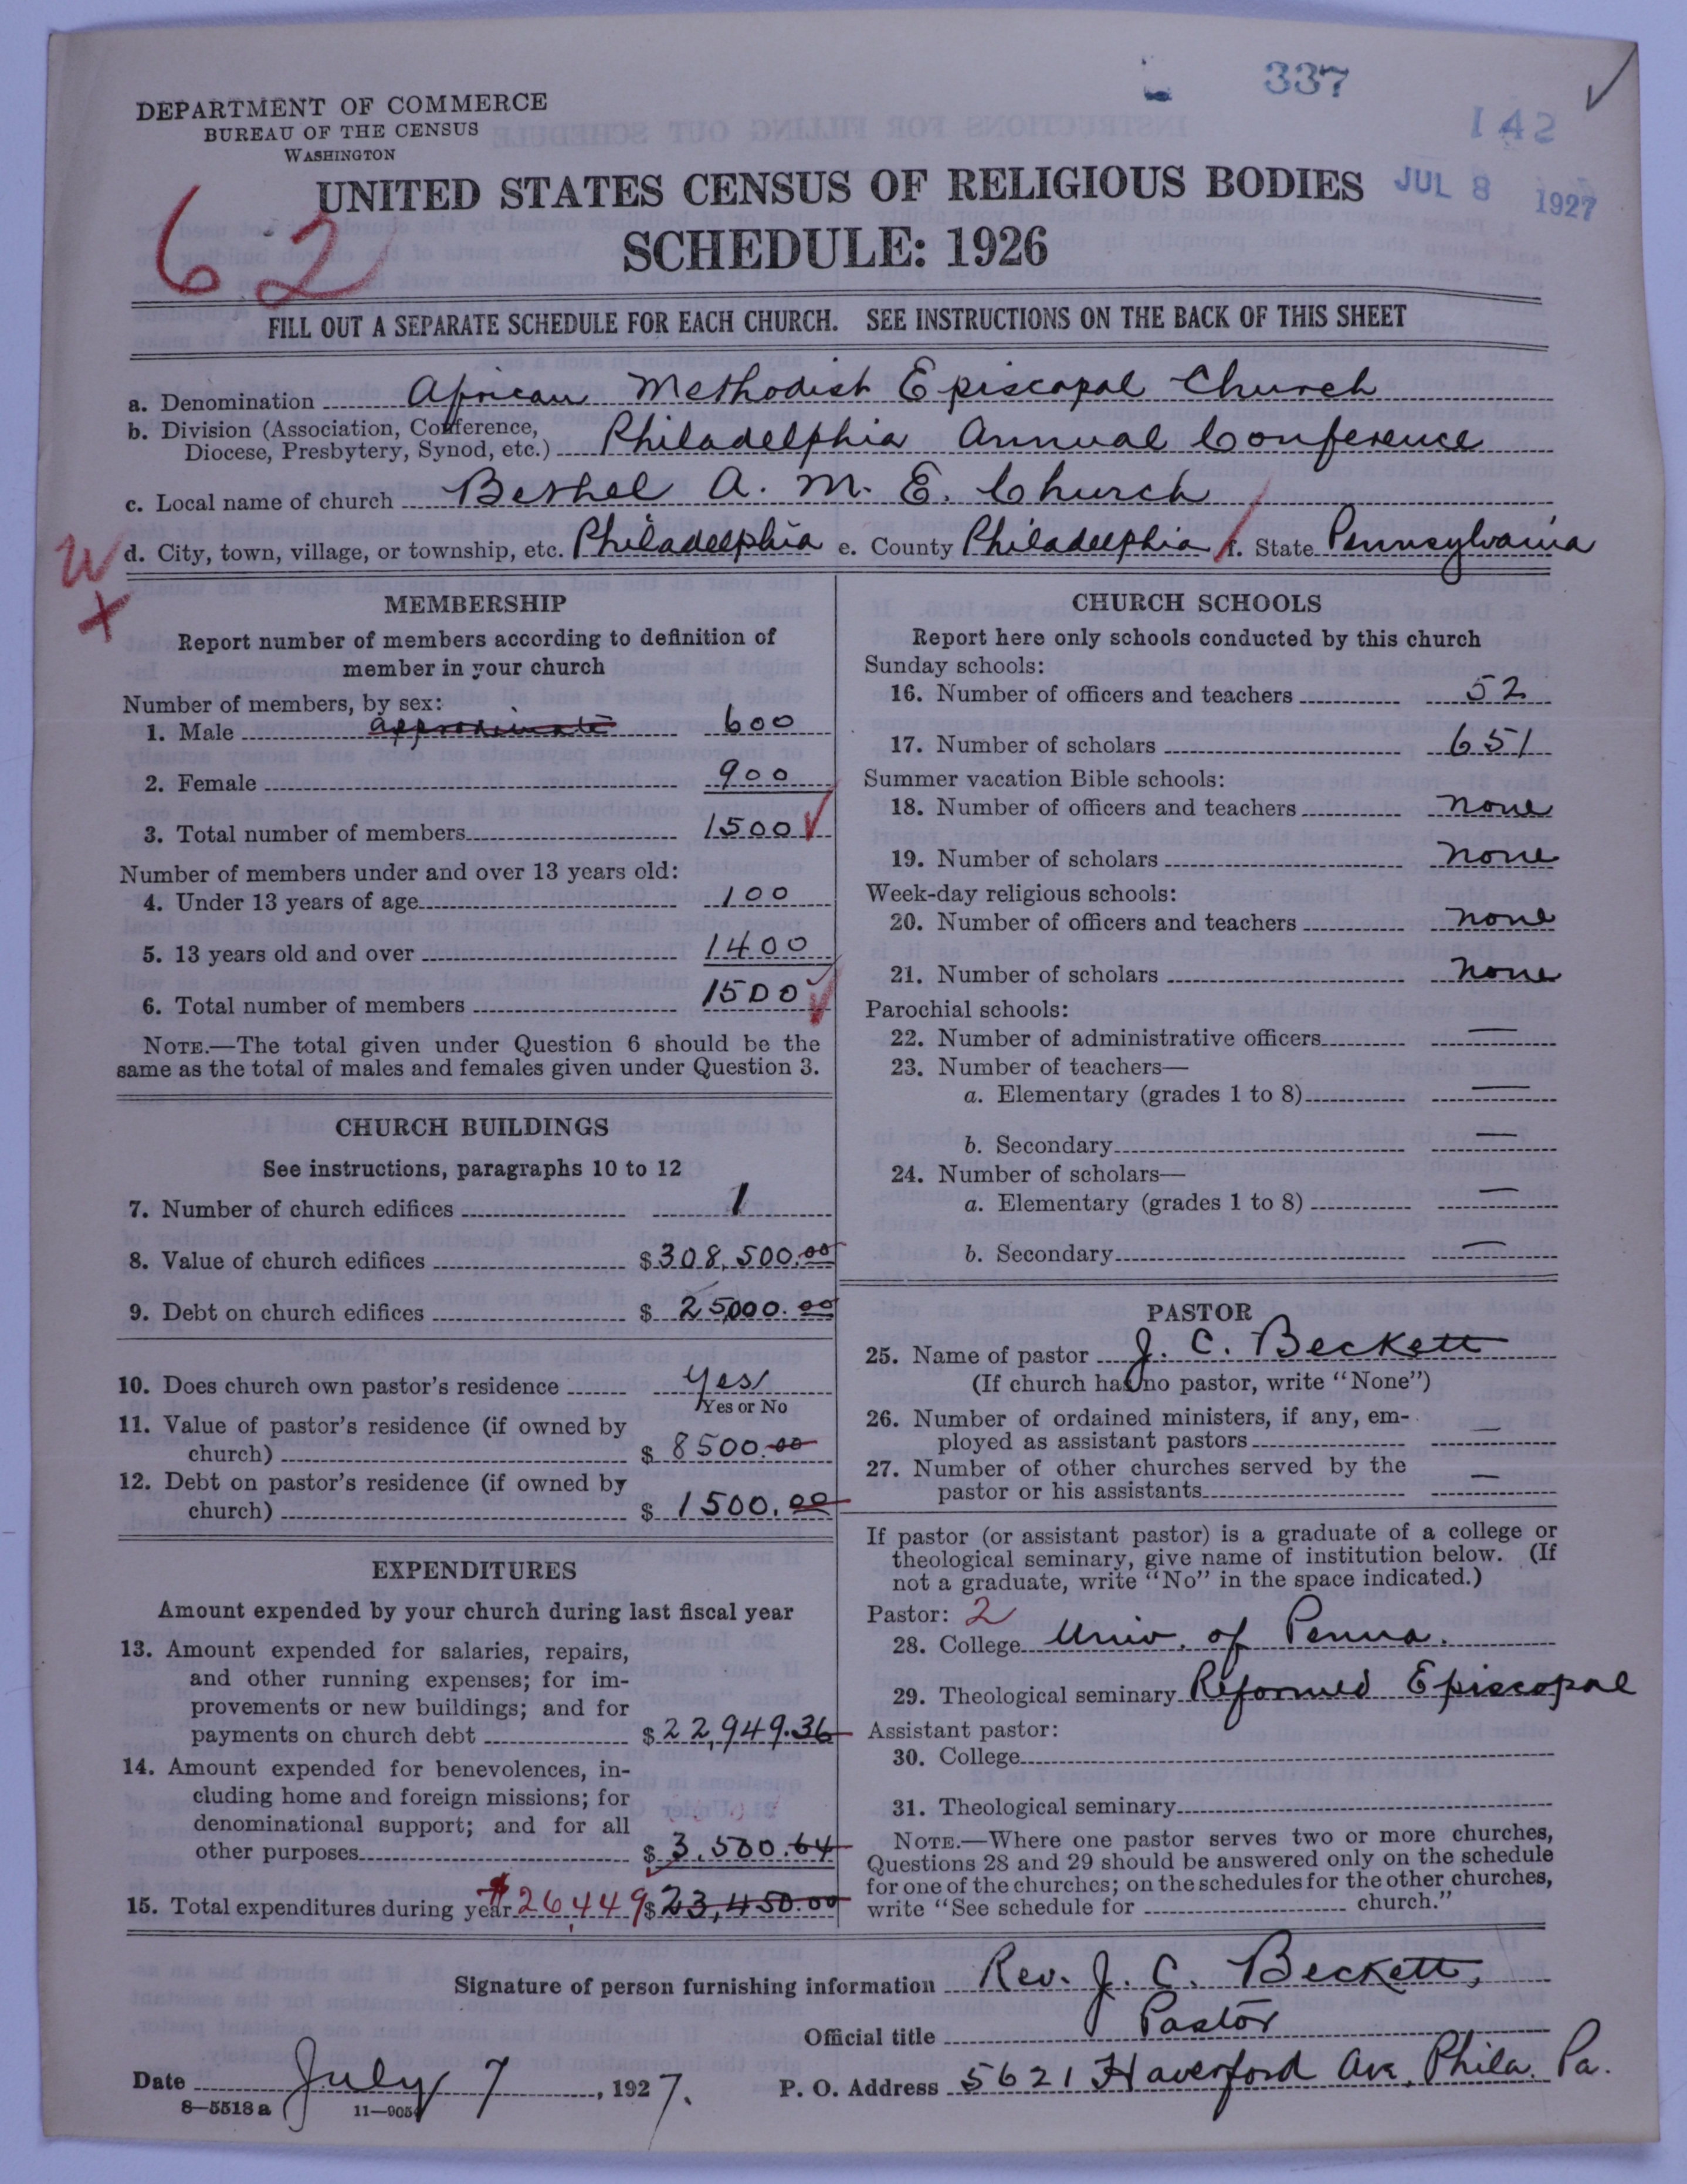 337
142
DEPARTMENT OF COMMERCE
BUREAU OF THE CENSUS
WASHINGTON
JUL 8 1927
62
UNITED STATES CENSUS OF RELIGIOUS BODIES
SCHEDULE: 1926
FILL OUT A SEPARATE SCHEDULE FOR EACH CHURCH. SEE INSTRUCTIONS ON THE BACK OF THIS SHEET
a. Denomination African Methodist Episcopal Church
b. Division (Association, Conference, Diocese, Presbytery, Synod, etc.) Philadelphia Annual Conference
c. Local name of church Bethel A. M. E. Church
d. City, town, village, or township, etc. Philadelphia e. County Philadelphia f. State Pennsylvania
W
MEMBERSHIP
Report number of members according to definition of
member in your church
Number of members, by sex:
1. Male approximate 600
2. Female 900
3. Total number of members 1500
Number of members under and over 13 years old:
4. Under 13 years of age 100
5. 13 years old and over 1400
6. Total number of members 1500
NOTE.—The total given under Question 6 should be the
same as the total of males and females given under Question 3.
CHURCH BUILDINGS
See instructions, paragraphs 10 to 12
7. Number of church edifices 1
8. Value of church edifices $308,500.00
9. Debt on church edifices $ 25,000.00
10. Does church own pastor's residence Yes
Yes or No
11. Value of pastor's residence (if owned by
church) $ 8500.00
12. Debt on pastor's residence (if owned by
church) $ 1500.00
EXPENDITURES
Amount expended by your church during last fiscal year
13. Amount expended for salaries, repairs,
and other running expenses; for im-
provements or new buildings; and for
payments on church debt $22,949.36
14. Amount expended for benevolences, in-
cluding home and foreign missions; for
denominational support; and for all
other purposes $ 3,500.64
15. Total expenditures during year $26,449 $23,450.00
CHURCH SCHOOLS
Report here only schools conducted by this church
Sunday schools:
16. Number of officers and teachers 52
17. Number of scholars 651
Summer vacation Bible schools:
18. Number of officers and teachers none
19. Number of scholars none
Week-day religious schools:
20. Number of officers and teachers none
21. Number of scholars none
Parochial schools:
22. Number of administrative officers —
23. Number of teachers—
a. Elementary (grades 1 to 8) —
b. Secondary —
24. Number of scholars—
a. Elementary (grades 1 to 8) —
b. Secondary —
PASTOR
25. Name of pastor J. C. Beckett
(If church has no pastor, write "None")
26. Number of ordained ministers, if any, em-
ployed as assistant pastors —
27. Number of other churches served by the
pastor or his assistants —
If pastor (or assistant pastor) is a graduate of a college or
theological seminary, give name of institution below. (If
not a graduate, write "No" in the space indicated.)
Pastor: 2
28. College Univ. of Penna.
29. Theological seminary Reformed Episcopal
Assistant pastor:
30. College
31. Theological seminary
NOTE.—Where one pastor serves two or more churches,
Questions 28 and 29 should be answered only on the schedule
for one of the churches; on the schedules for the other churches,
write "See schedule for church."
Signature of person furnishing information Rev. J. C. Beckett,
Official title Pastor
Date July 7, 1927. P. O. Address 5621 Haverford Ave. Phila. Pa.
8—5518a 11—9054